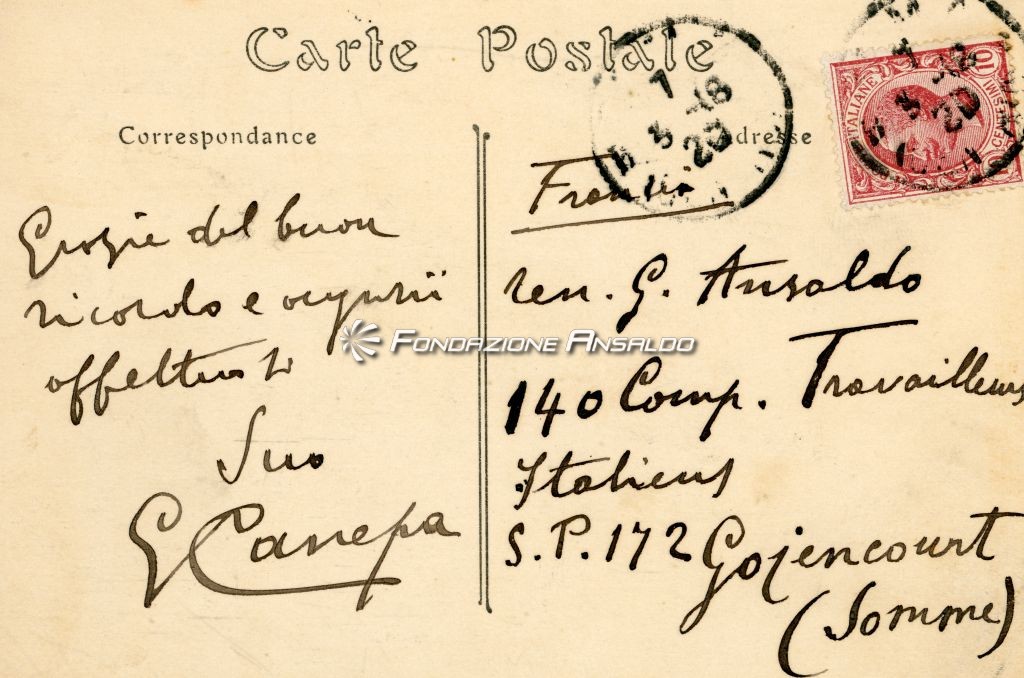 Carte Postale
Correspondance
Adresse
Grazie del buon
ricordo e augurii
affettuosi
Suo
G Canepa
Francia
Ten. G. Ansaldo
140 Comp. Travailleurs
Italiens
S.P. 172 Gojencourt
(Somme)
FONDAZIONE ANSALDO
ITALIANE
10 CENTESIMI 10